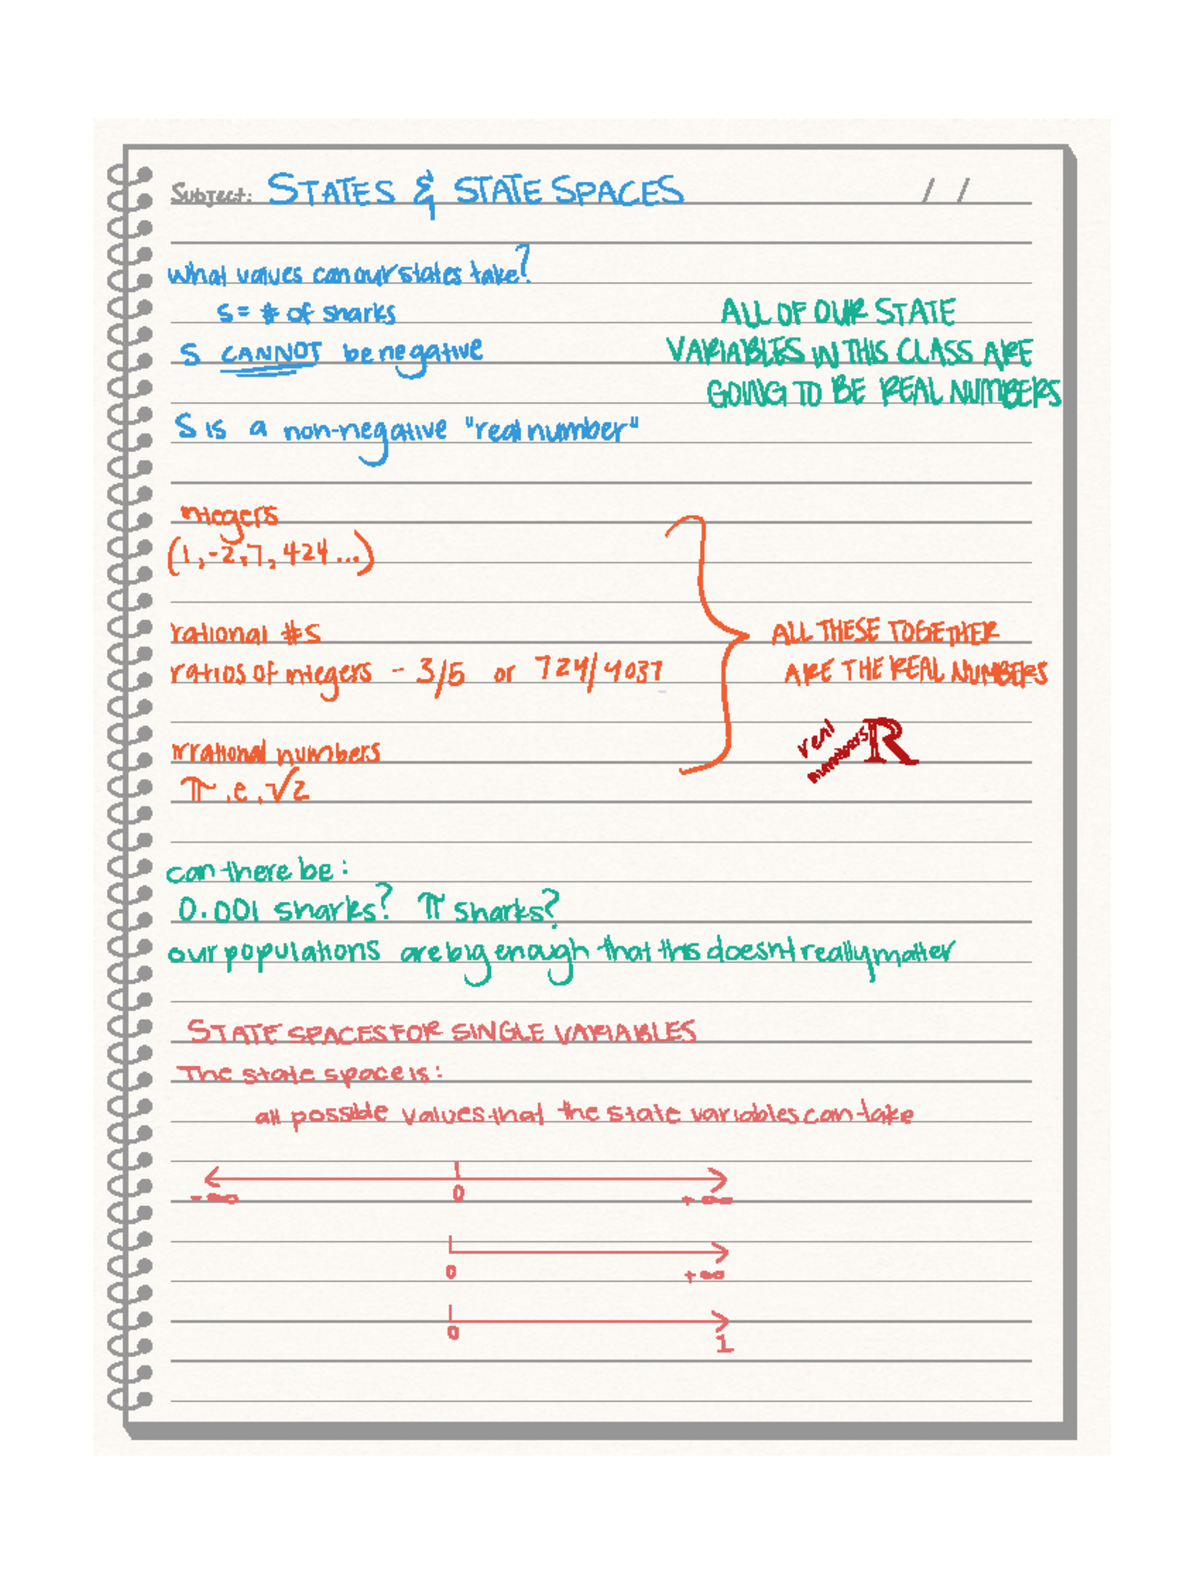 Subject: STATES & STATE SPACES / /
what values can our states take?
S = # of sharks
S CANNOT be negative
ALL OF OUR STATE
VARIABLES IN THIS CLASS ARE
GOING TO BE REAL NUMBERS
S is a non-negative "real number"
integers
(1, -2, 7, 424 ...)
rational #s
ratios of integers - 3/5 or 724/4037
irrational numbers
π, e, √2
ALL THESE TOGETHER
ARE THE REAL NUMBERS
real numbers ℝ
can there be:
0.001 sharks? π sharks?
our populations are big enough that this doesnt really matter
STATE SPACES FOR SINGLE VARIABLES
The state space is:
all possible values that the state variables can take
-∞ 0 +∞
0 +∞
0 1